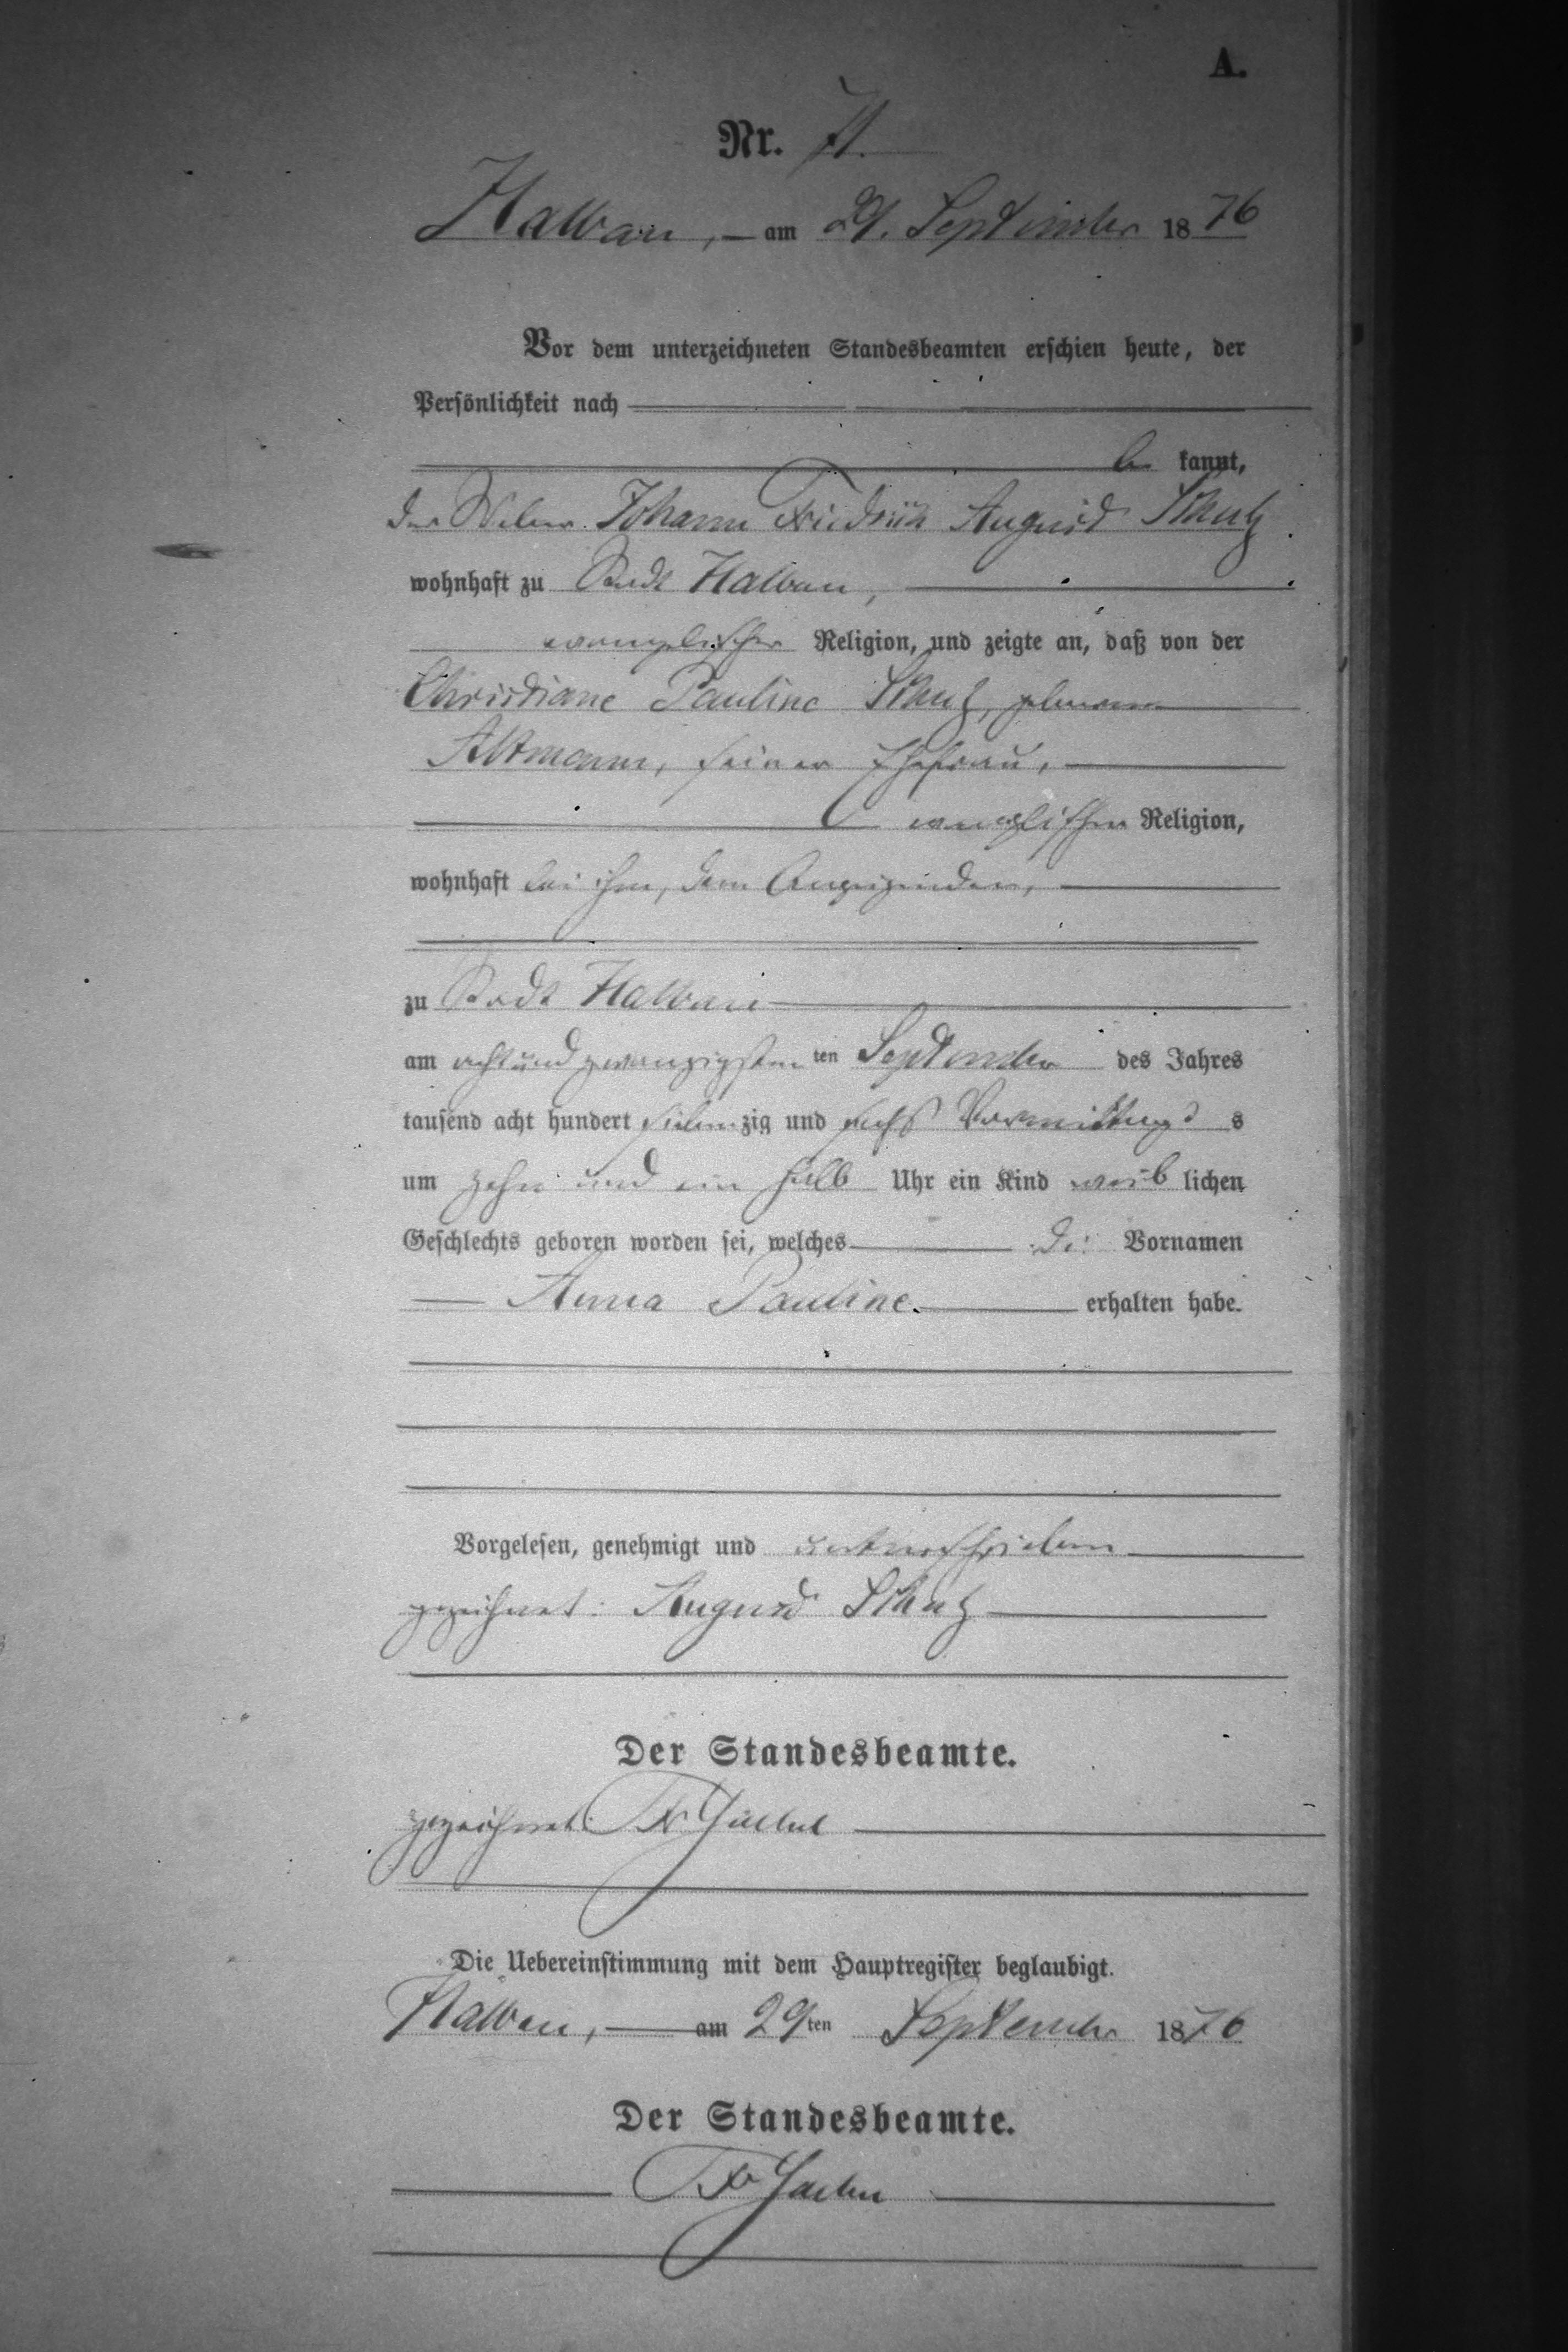 A.
Nr. 71.
Halbau, — am 29. September 1876
Vor dem unterzeichneten Standesbeamten erschien heute, der
Persönlichkeit nach
be kannt,
der Weber Johann Friedrich August
wohnhaft zu Stadt Halbau,
evangelischer Religion, und zeigte an, daß von der
Christiane Pauline geborene
Altmann, seiner Ehefrau,
evangelischer Religion,
wohnhaft bei ihm, dem Anzeigenden,
zu Stadt Halbau
am achtundzwanzigsten ten September des Jahres
tausend acht hundert siebenzig und sechs Vormittags s
um zehn und ein halb Uhr ein Kind weib lichen
Geschlechts geboren worden sei, welches die Vornamen
Anna Pauline. erhalten habe.
Vorgelesen, genehmigt und unterschrieben
gezeichnet: August
Der Standesbeamte.
gezeichnet:
Die Uebereinstimmung mit dem Hauptregister beglaubigt.
Halbau, — am 29ten September 1876
Der Standesbeamte.